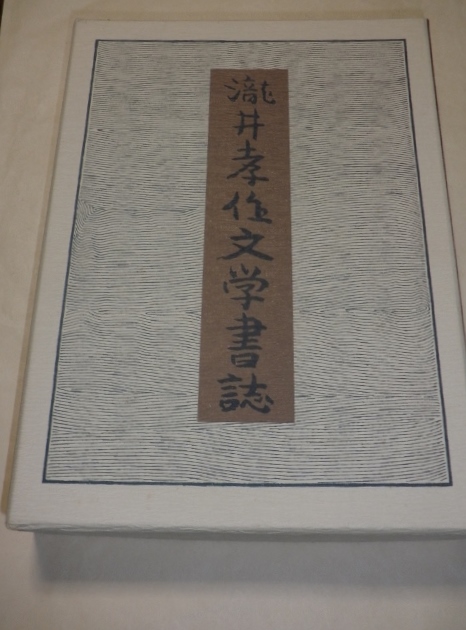 瀧井孝作文学書誌